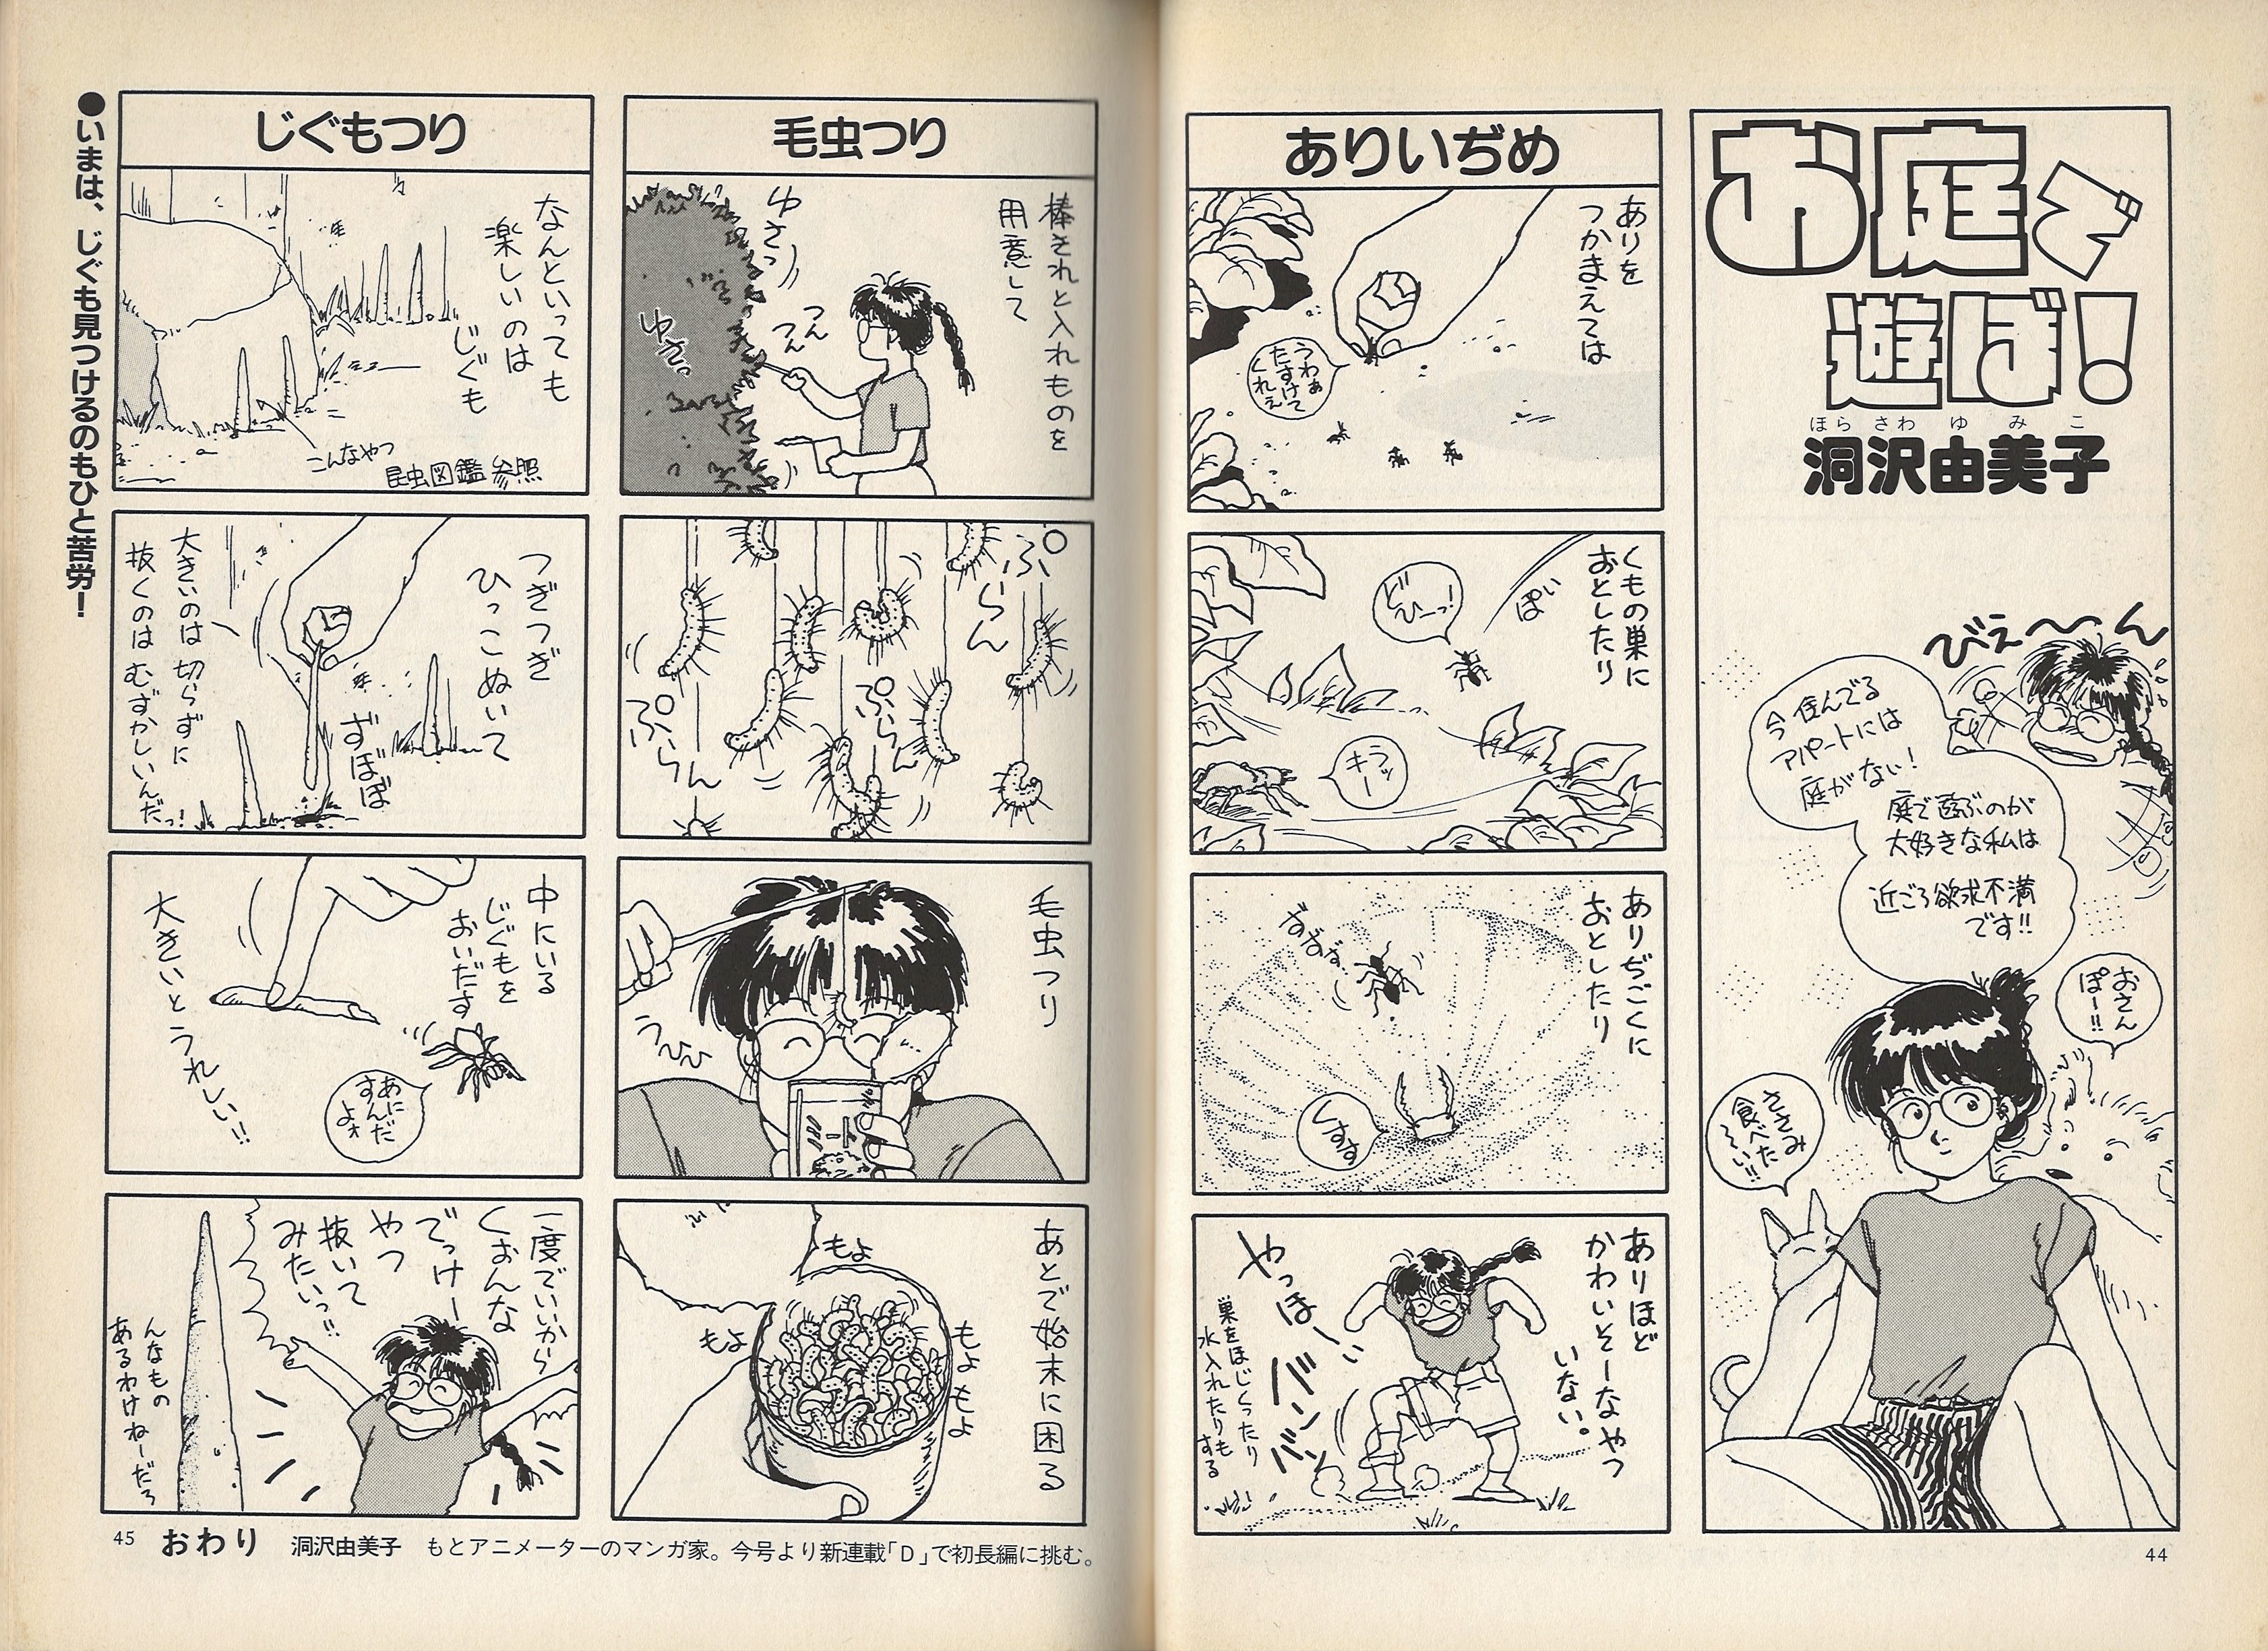 お庭で
遊ば!
ほら さわ ゆ み こ
洞沢由美子
びぇ〜〜ん
今住んでる
アパートには
庭がない!
庭で遊ぶのが
大好きな私は
近ごろ欲求不満
です!!
おさん
ぽー!!
ささみ
食べた
〜い!!
44
ありいぢめ
ありを
つかまえては
うわぁ
たすけて
くれぇ
くもの巣に
おとしたり
ぽい
どひーっ!
キラッ
ー
ありぢごくに
おとしたり
ずずず
くすす
ありほど
かわいそーなやつ
いない。
やっほーい
バンバン
巣をほじくったり
水入れたりもする
毛虫つり
棒きれと入れものを
用意して
ゆさっ
つん
つん
ゆさっ
ぷらん
ぷらん
ぷらん
毛虫つり
うひひ
あとで始末に困る
もよ
もよ
もよ
もよ
じぐもつり
なんといっても
楽しいのは
じぐも
こんなやつ
昆虫図鑑参照
つぎつぎ
ひっこぬいて
ずぼぼ
大きいのは切らずに
抜くのはむずかしいんだっ!
中にいる
じぐもを
おいだす
あに
すんだ
よォ
大きいとうれしい!!
一度でいいから
くおんな
でっけー
やつ
抜いて
みたいっ!!
んなもの
あるわけねーだろ
●いまは、じぐも見つけるのもひと苦労!
45 おわり 洞沢由美子 もとアニメーターのマンガ家。今号より新連載「D」で初長編に挑む。